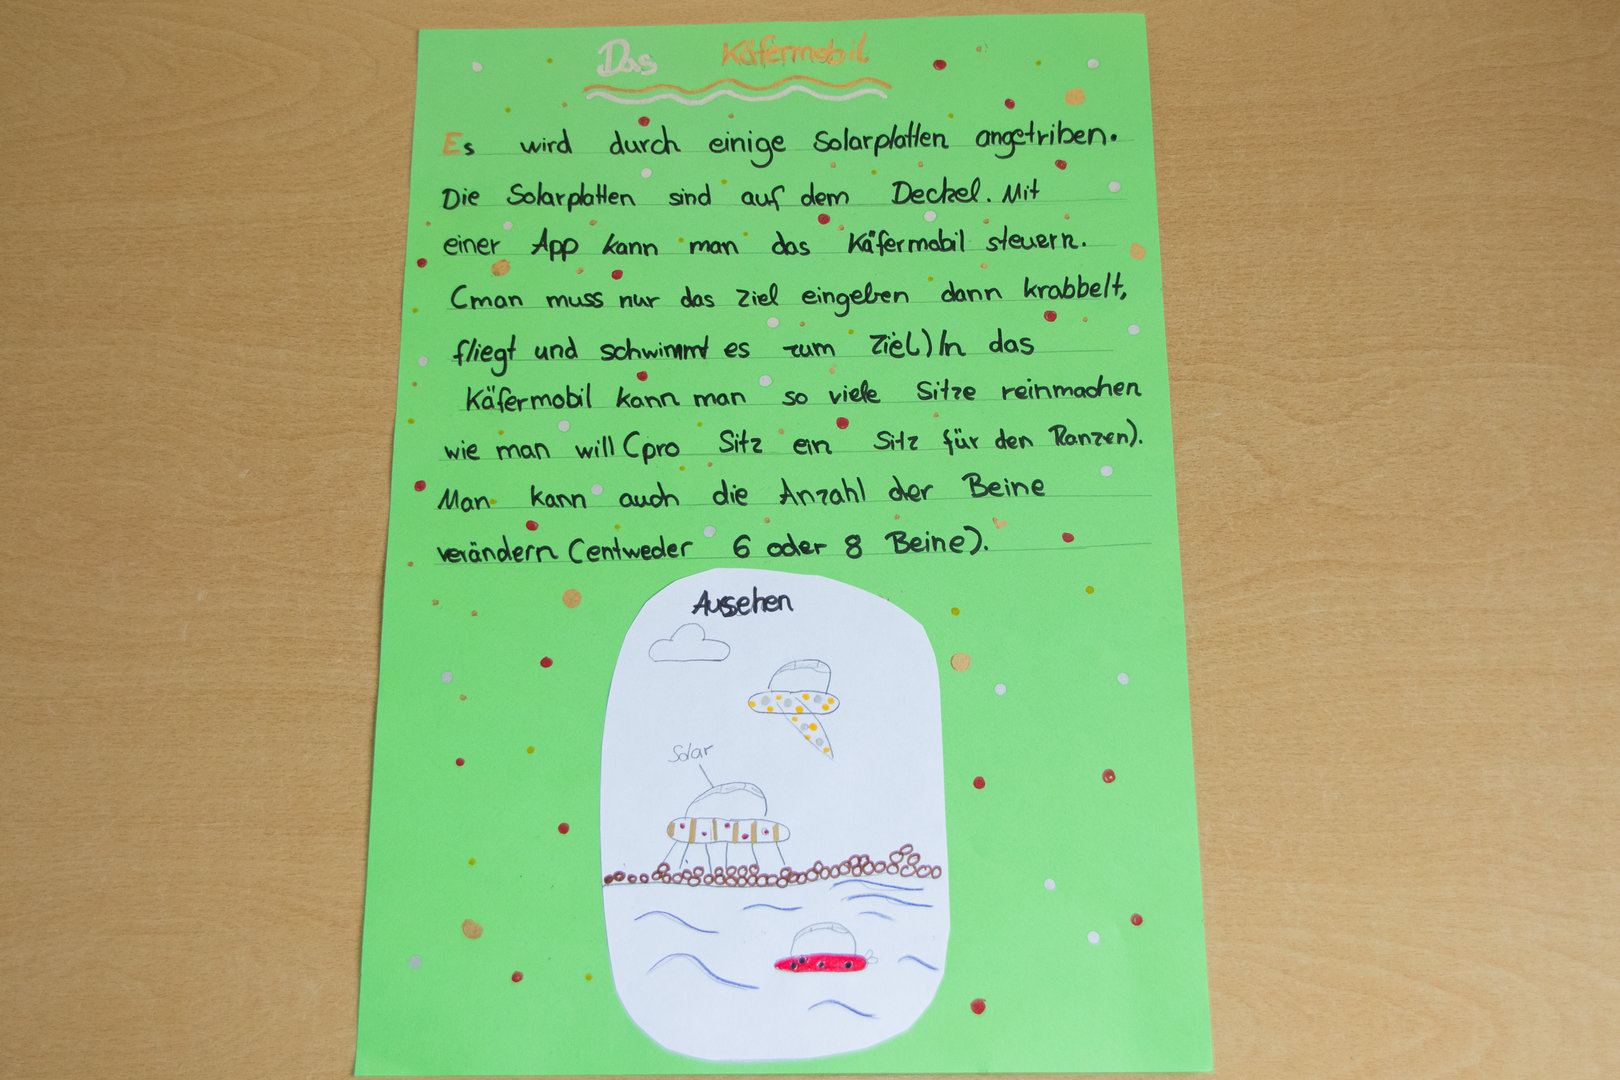 Das Käfermobil
Es wird durch einige Solarplatten angetriben.
Die Solarplatten sind auf dem Deckel. Mit
einer App kann man das Käfermobil steuern.
(man muss nur das Ziel eingeben dann krabbelt,
fliegt und schwimmt es zum Ziel) In das
Käfermobil kann man so viele Sitze reinmachen
wie man will (pro Sitz ein Sitz für den Ranzen).
Man kann auch die Anzahl der Beine
verändern (entweder 6 oder 8 Beine).
Aussehen
Solar